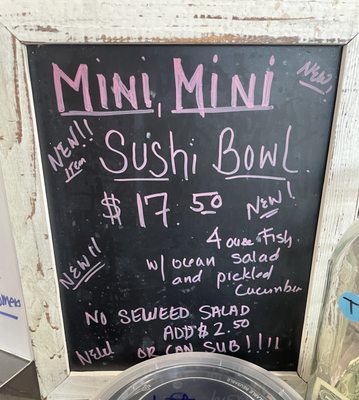 MINI, MINI
NEW
NEW!!
Item
SUSHI BOWL
$17.50
NEW!
4 ounce Fish
w/ ocean salad
and pickled
Cucumber
NEW!!
NO SEWEED SALAD
ADD $2.50
NEW OR CAN SUB!!!!